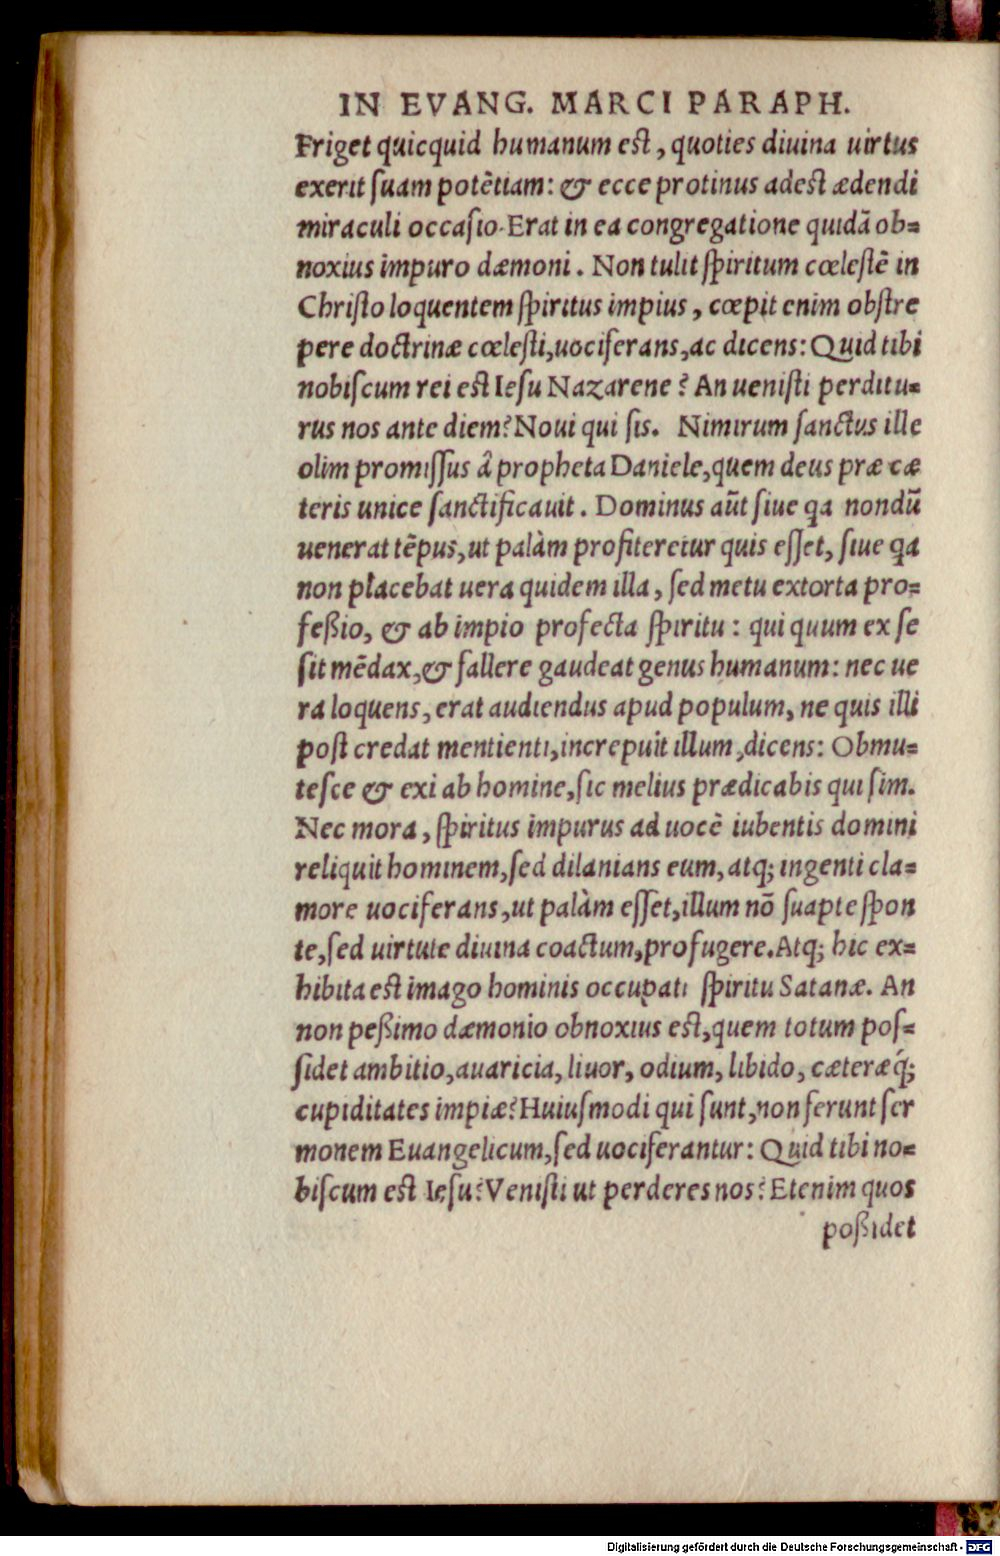 IN EVANG. MARCI PARAPH.
Friget quicquid humanum est, quoties diuina uirtus
exerit suam potētiam: & ecce protinus adest ædendi
miraculi occasio. Erat in ea congregatione quidã ob=
noxius impuro dæmoni. Non tulit spiritum cœlestē in
Christo loquentem spiritus impius, cœpit enim obstre
pere doctrinæ cœlesti, uociferans, ac dicens: Quid tibi
nobiscum rei est Iesu Nazarene? An uenisti perditu=
rus nos ante diem? Noui qui sis. Nimirum sanctus ille
olim promissus â propheta Daniele, quem deus præ cæ
teris unice sanctificauit. Dominus aūt siue qa nondū
uenerat tēpus, ut palàm profiteretur quis esset, siue qa
non placebat uera quidem illa, sed metu extorta pro=
feßio, & ab impio profecta spiritu: qui quum ex se
sit mēdax, & fallere gaudeat genus humanum: nec ue
ra loquens, erat audiendus apud populum, ne quis illi
post credat mentienti, increpuit illum, dicens: Obmu=
tesce & exi ab homine, sic melius prædicabis qui sim.
Nec mora, spiritus impurus ad uocē iubentis domini
reliquit hominem, sed dilanians eum, atq; ingenti cla=
more uociferans, ut palàm esset, illum nō suapte spon
te, sed uirtute diuina coactum, profugere. Atq; hic ex=
hibita est imago hominis occupati spiritu Satanæ. An
non peßimo dæmonio obnoxius est, quem totum pos=
sidet ambitio, auaricia, liuor, odium, libido, cæteræq́;
cupiditates impiæ? Huiusmodi qui sunt, non ferunt ser
monem Euangelicum, sed uociferantur: Quid tibi no=
biscum est Iesu? Venisti ut perderes nos? Etenim quos
poßidet
Digitalisierung gefördert durch die Deutsche Forschungsgemeinschaft - DFG